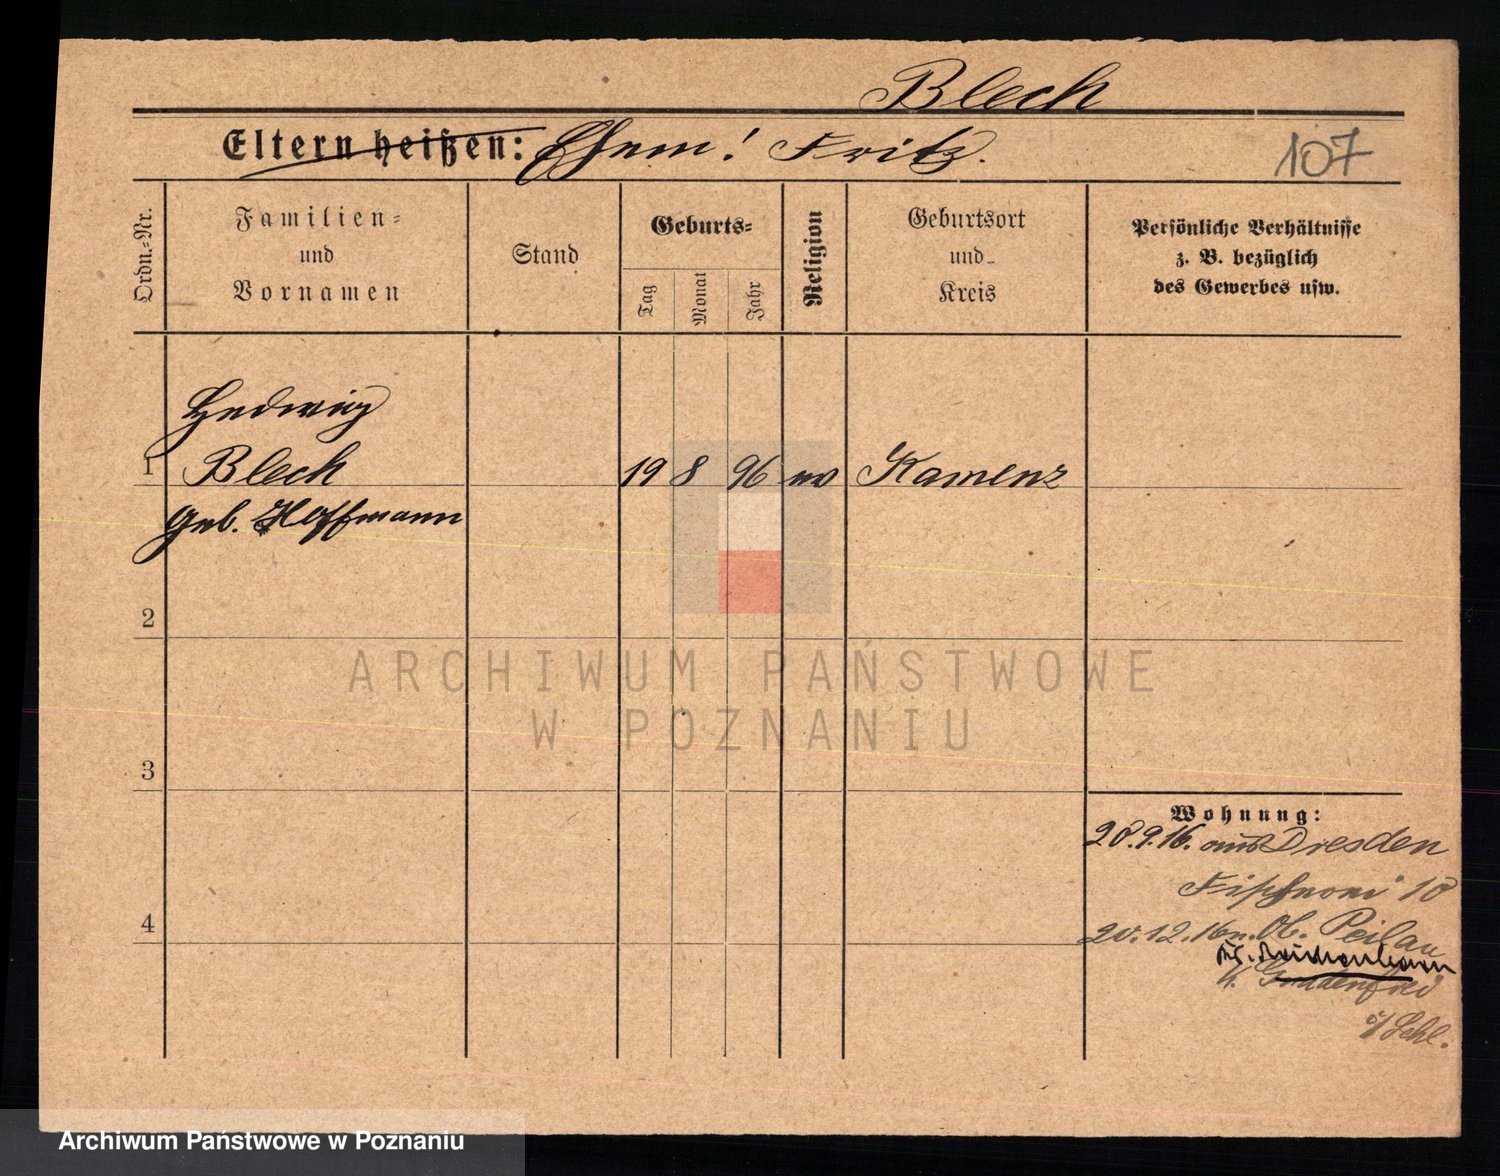 Blech
Eltern heißen: Ehem! Fritz.
107
Ordn.-Nr.
Familien-
und
Vornamen
Stand
Geburts-
Tag
Monat
Jahr
Religion
Geburtsort
und
Kreis
Persönliche Verhältnisse
z. B. bezüglich
des Gewerbes usw.
Hedwig
1 Blech 19 8 96 ev Kamenz
geb. Hoffmann
2
3
4
Wohnung:
28.9.16. aus Dresden
18
20.12.16 n. Ob. Peilau
Kr. Reichenbach
Gnadenfrei
i/Schl.
ARCHIWUM PAŃSTWOWE
W POZNANIU
Archiwum Państwowe w Poznaniu